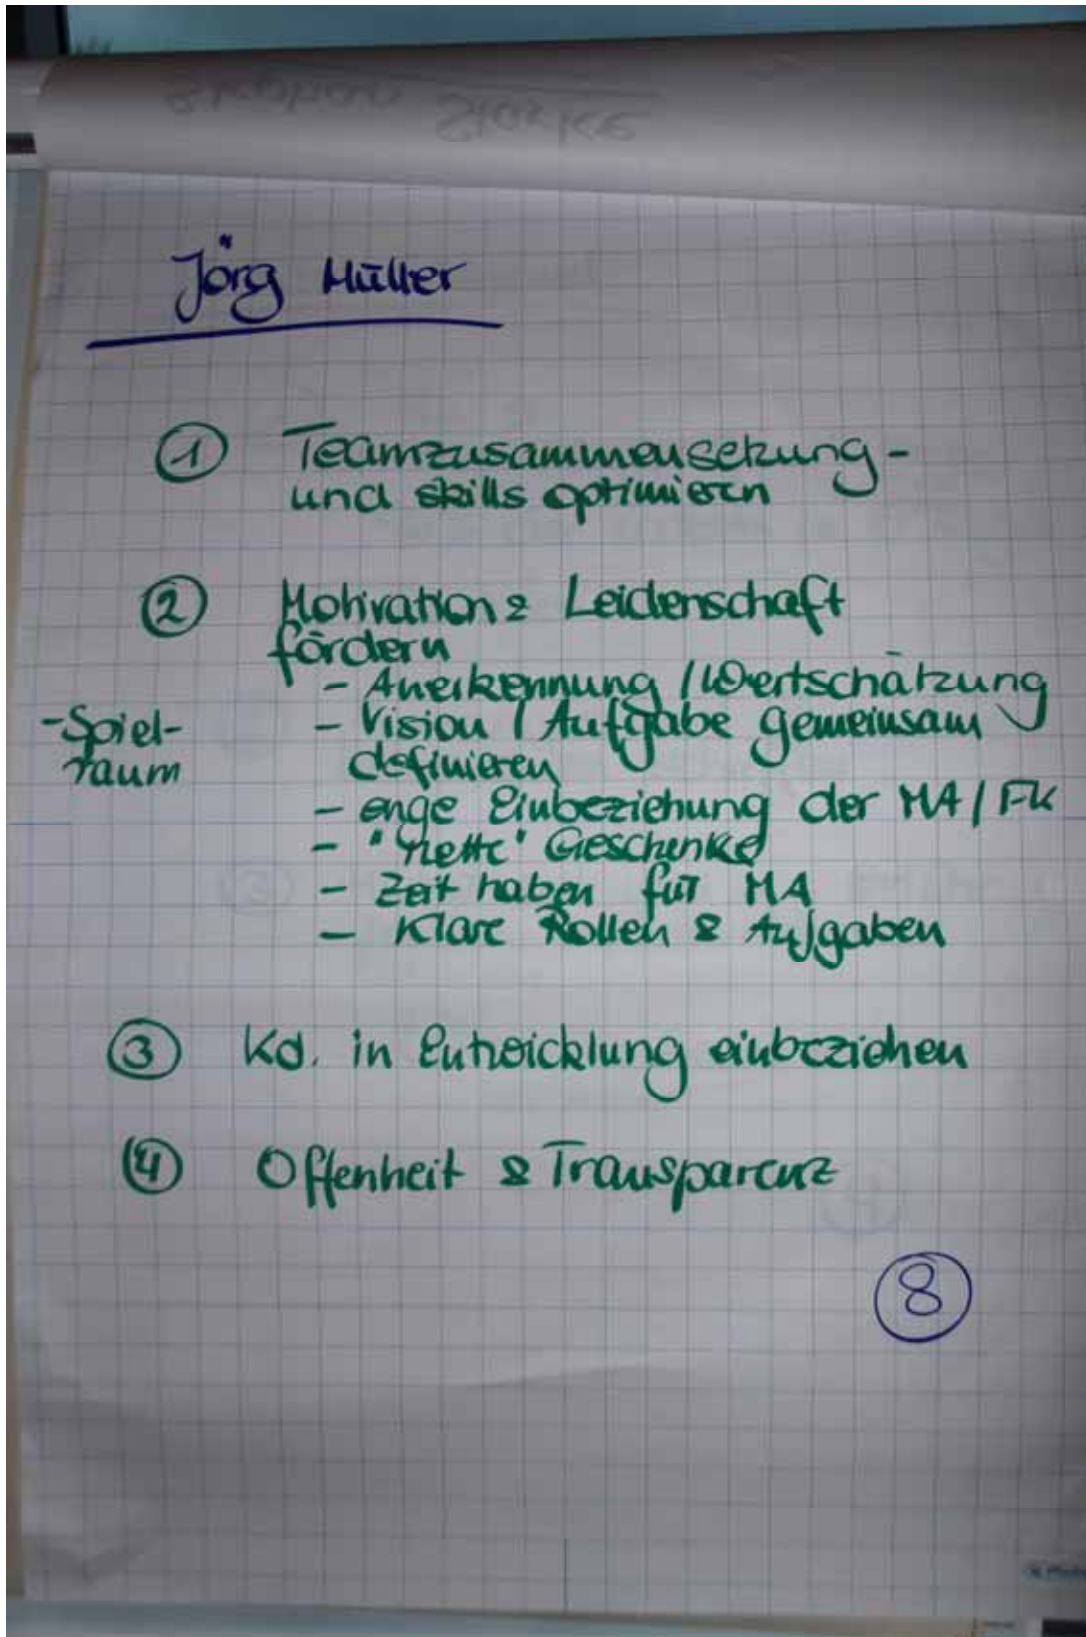 Stephan Starke
Jörg Müller
① Teamzusammensetzung -
und skills optimieren
② Motivation & Leidenschaft
fördern
- Anerkennung / Wertschätzung
- Vision / Aufgabe gemeinsam
definieren
- Spiel-
raum
- enge Einbeziehung der MA / FK
- "nette" Geschenke
- Zeit haben für MA
- Klare Rollen & Aufgaben
③ Kd. in Entwicklung einbeziehen
④ Offenheit & Transparenz
⑧